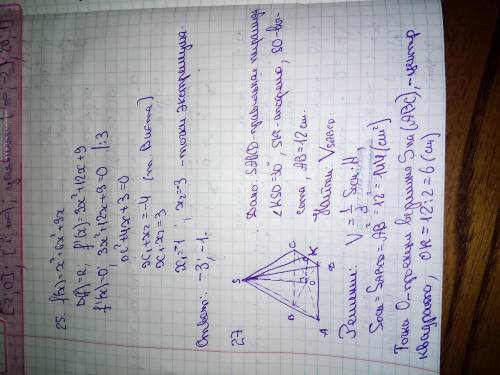 25. f(x)=x³+6x²+9x
D(f)=R, f'(x)=3x²+12x+9
f'(x)=0, 3x²+12x+9=0 |:3
x²+4x+3=0
x₁+x₂=-4 (т. Виета)
x₁x₂=3
x₁=1 ; x₂=3 - точки экстремума.
Ответ: -3; -1.
27
S
A
B
C
D
K
O
Дано SABCD-правильная пирамида
∠KSO=30°, SK-апофема, SO-вы-
сота, AB=12см.
Найти V SABCD
Решение: V=1/3 Sосн·H,
Sосн=SABCD=AB²=12²=144(см²)
Точка O-проекция вершина S на (ABC),-центр
квадрата, OK=12:2=6(см)